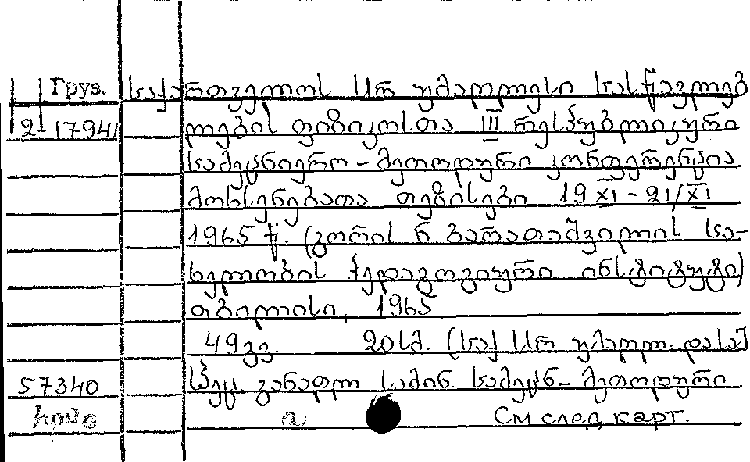 Груз. საქართველოს სსრ უმაღლესი სასწავლებ
2-1794 ლების ფიზიკოსთა III რესპუბლიკური
სამეცნიერო-მეთოდური კონფერენცია
მოხსენებათა თეზისები 19 XI - 21/XI
1965 წ. (გორის ნ ბარათაშვილის სა-
ხელობის პედაგოგიური ინსტიტუტი)
თბილისი, 1965
49 გვ 20სმ. (საქ სსრ უმაღლ. და სა
57340 სპეც განათლ სამინ. სამეცნ-მეთოდური
См след карт.